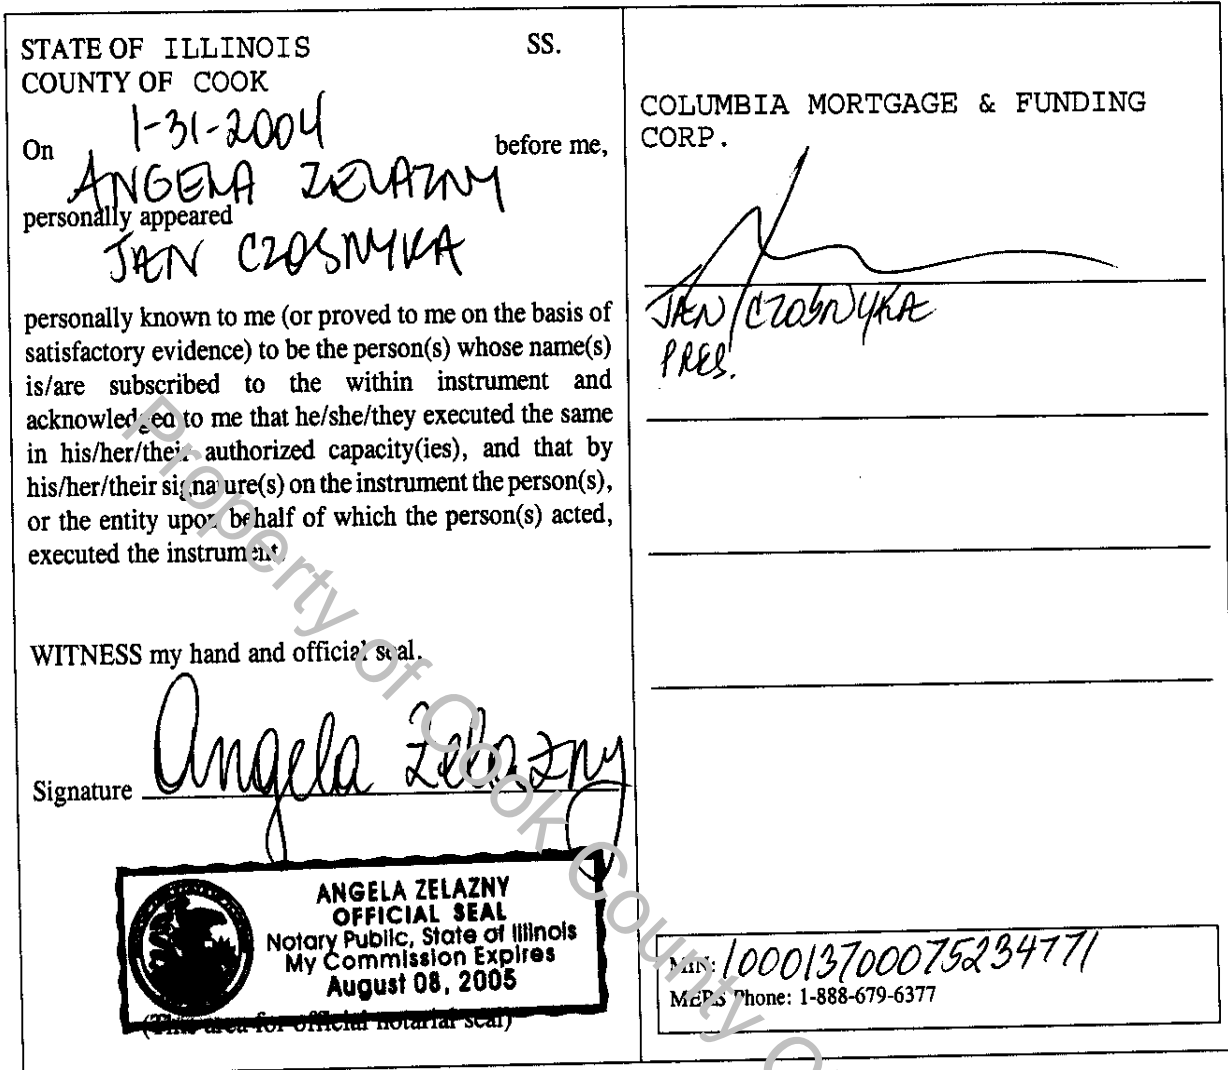 STATE OF ILLINOIS SS.
COUNTY OF COOK
On 1-31-2004 before me,
ANGELA ZELAZNY
personally appeared
JAN CZOSNYKA
personally known to me (or proved to me on the basis of
satisfactory evidence) to be the person(s) whose name(s)
is/are subscribed to the within instrument and
acknowledged to me that he/she/they executed the same
in his/her/their authorized capacity(ies), and that by
his/her/their signature(s) on the instrument the person(s),
or the entity upon behalf of which the person(s) acted,
executed the instrument.
WITNESS my hand and official seal.
Signature Angela Zelazny
ANGELA ZELAZNY
OFFICIAL SEAL
Notary Public, State of Illinois
My Commission Expires
August 08, 2005
(This area for official notarial seal)
COLUMBIA MORTGAGE & FUNDING
CORP.
JAN CZOSNYKA
PRES.
MIN: 100013700075234771
MERS Phone: 1-888-679-6377
Property of Cook County